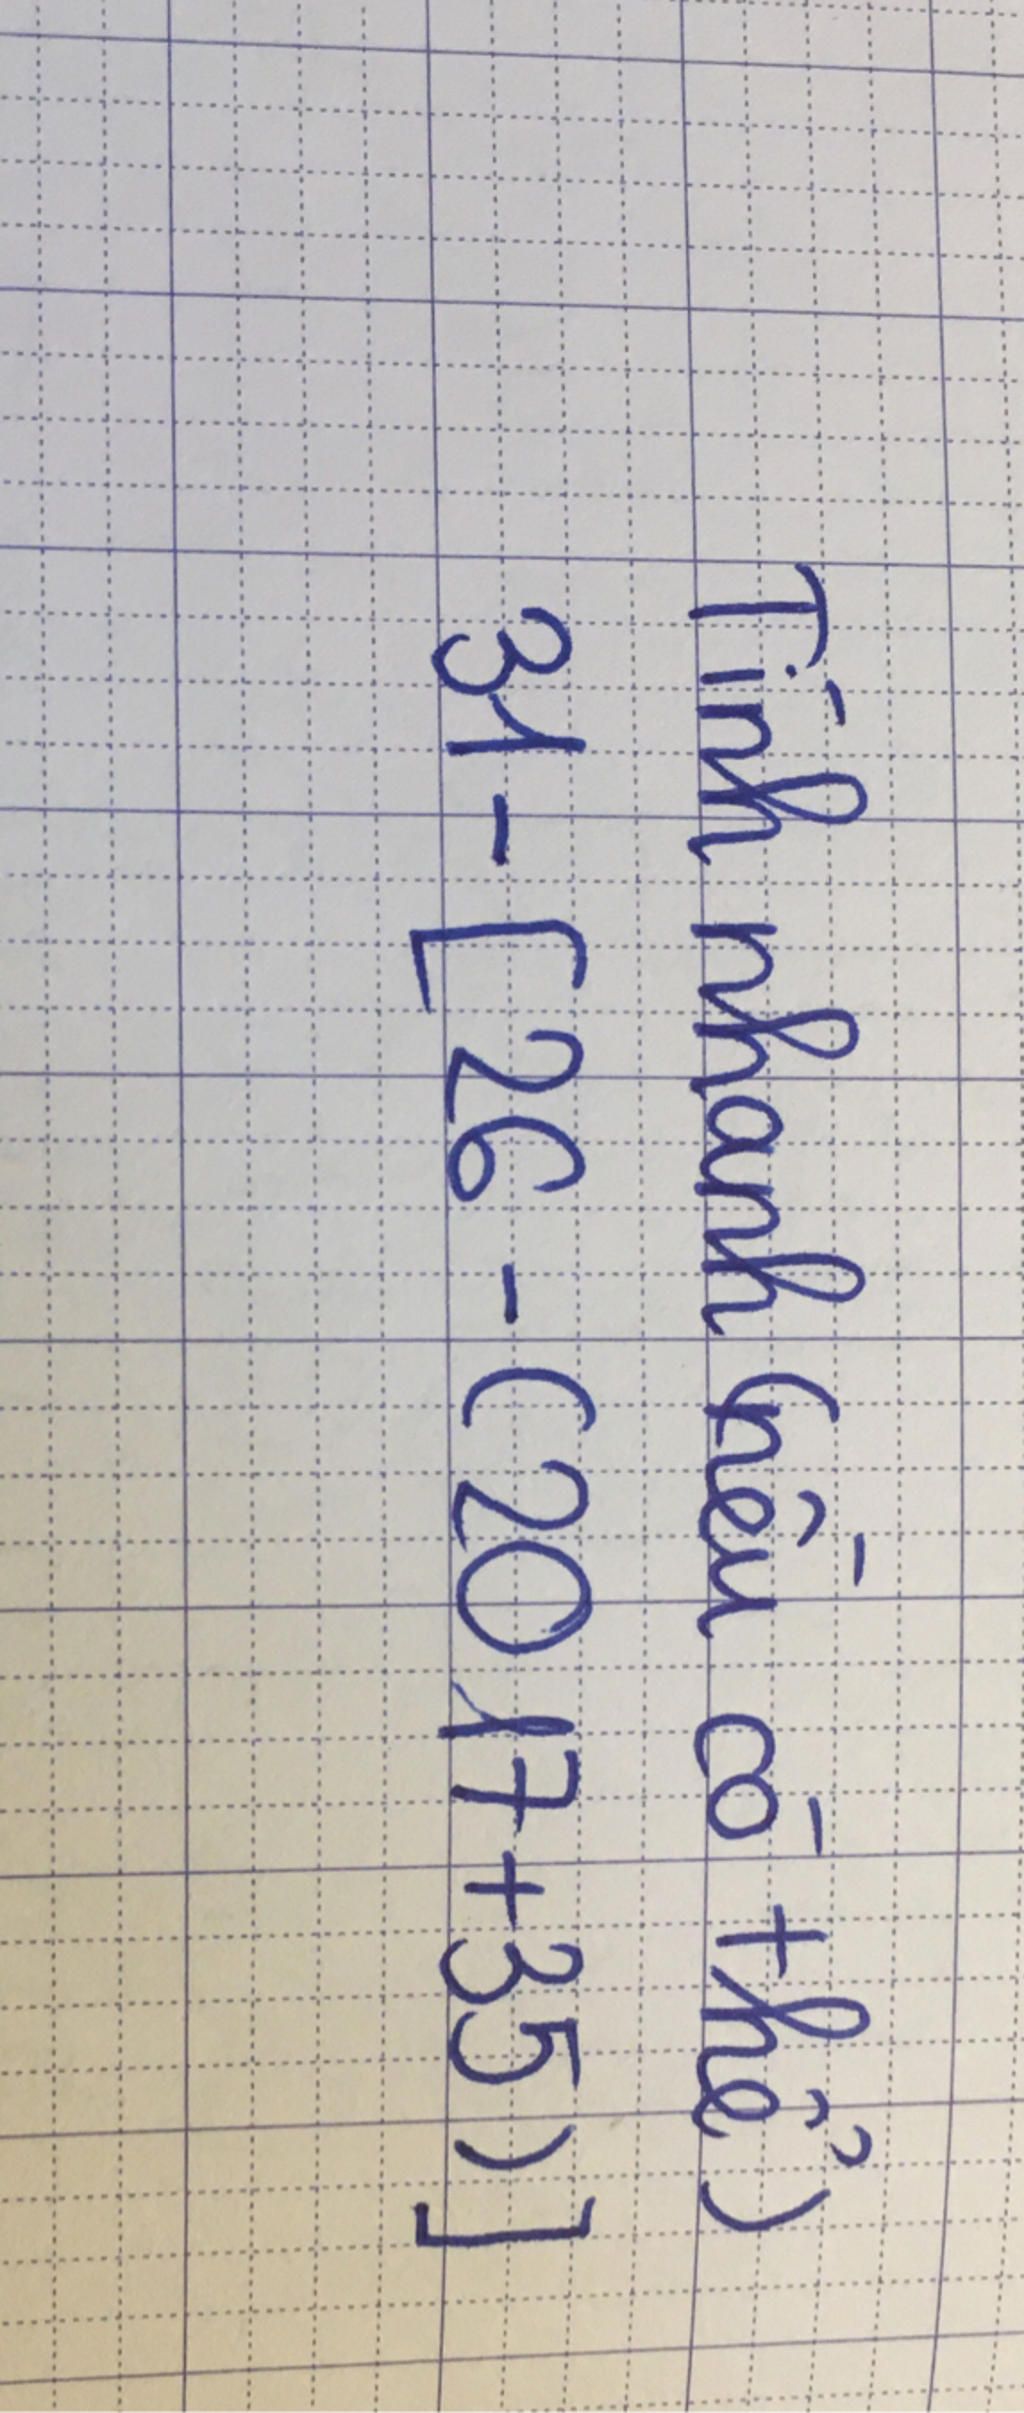 Tính nhanh (nếu có thể)
31 - [26 - (2017 + 35)]